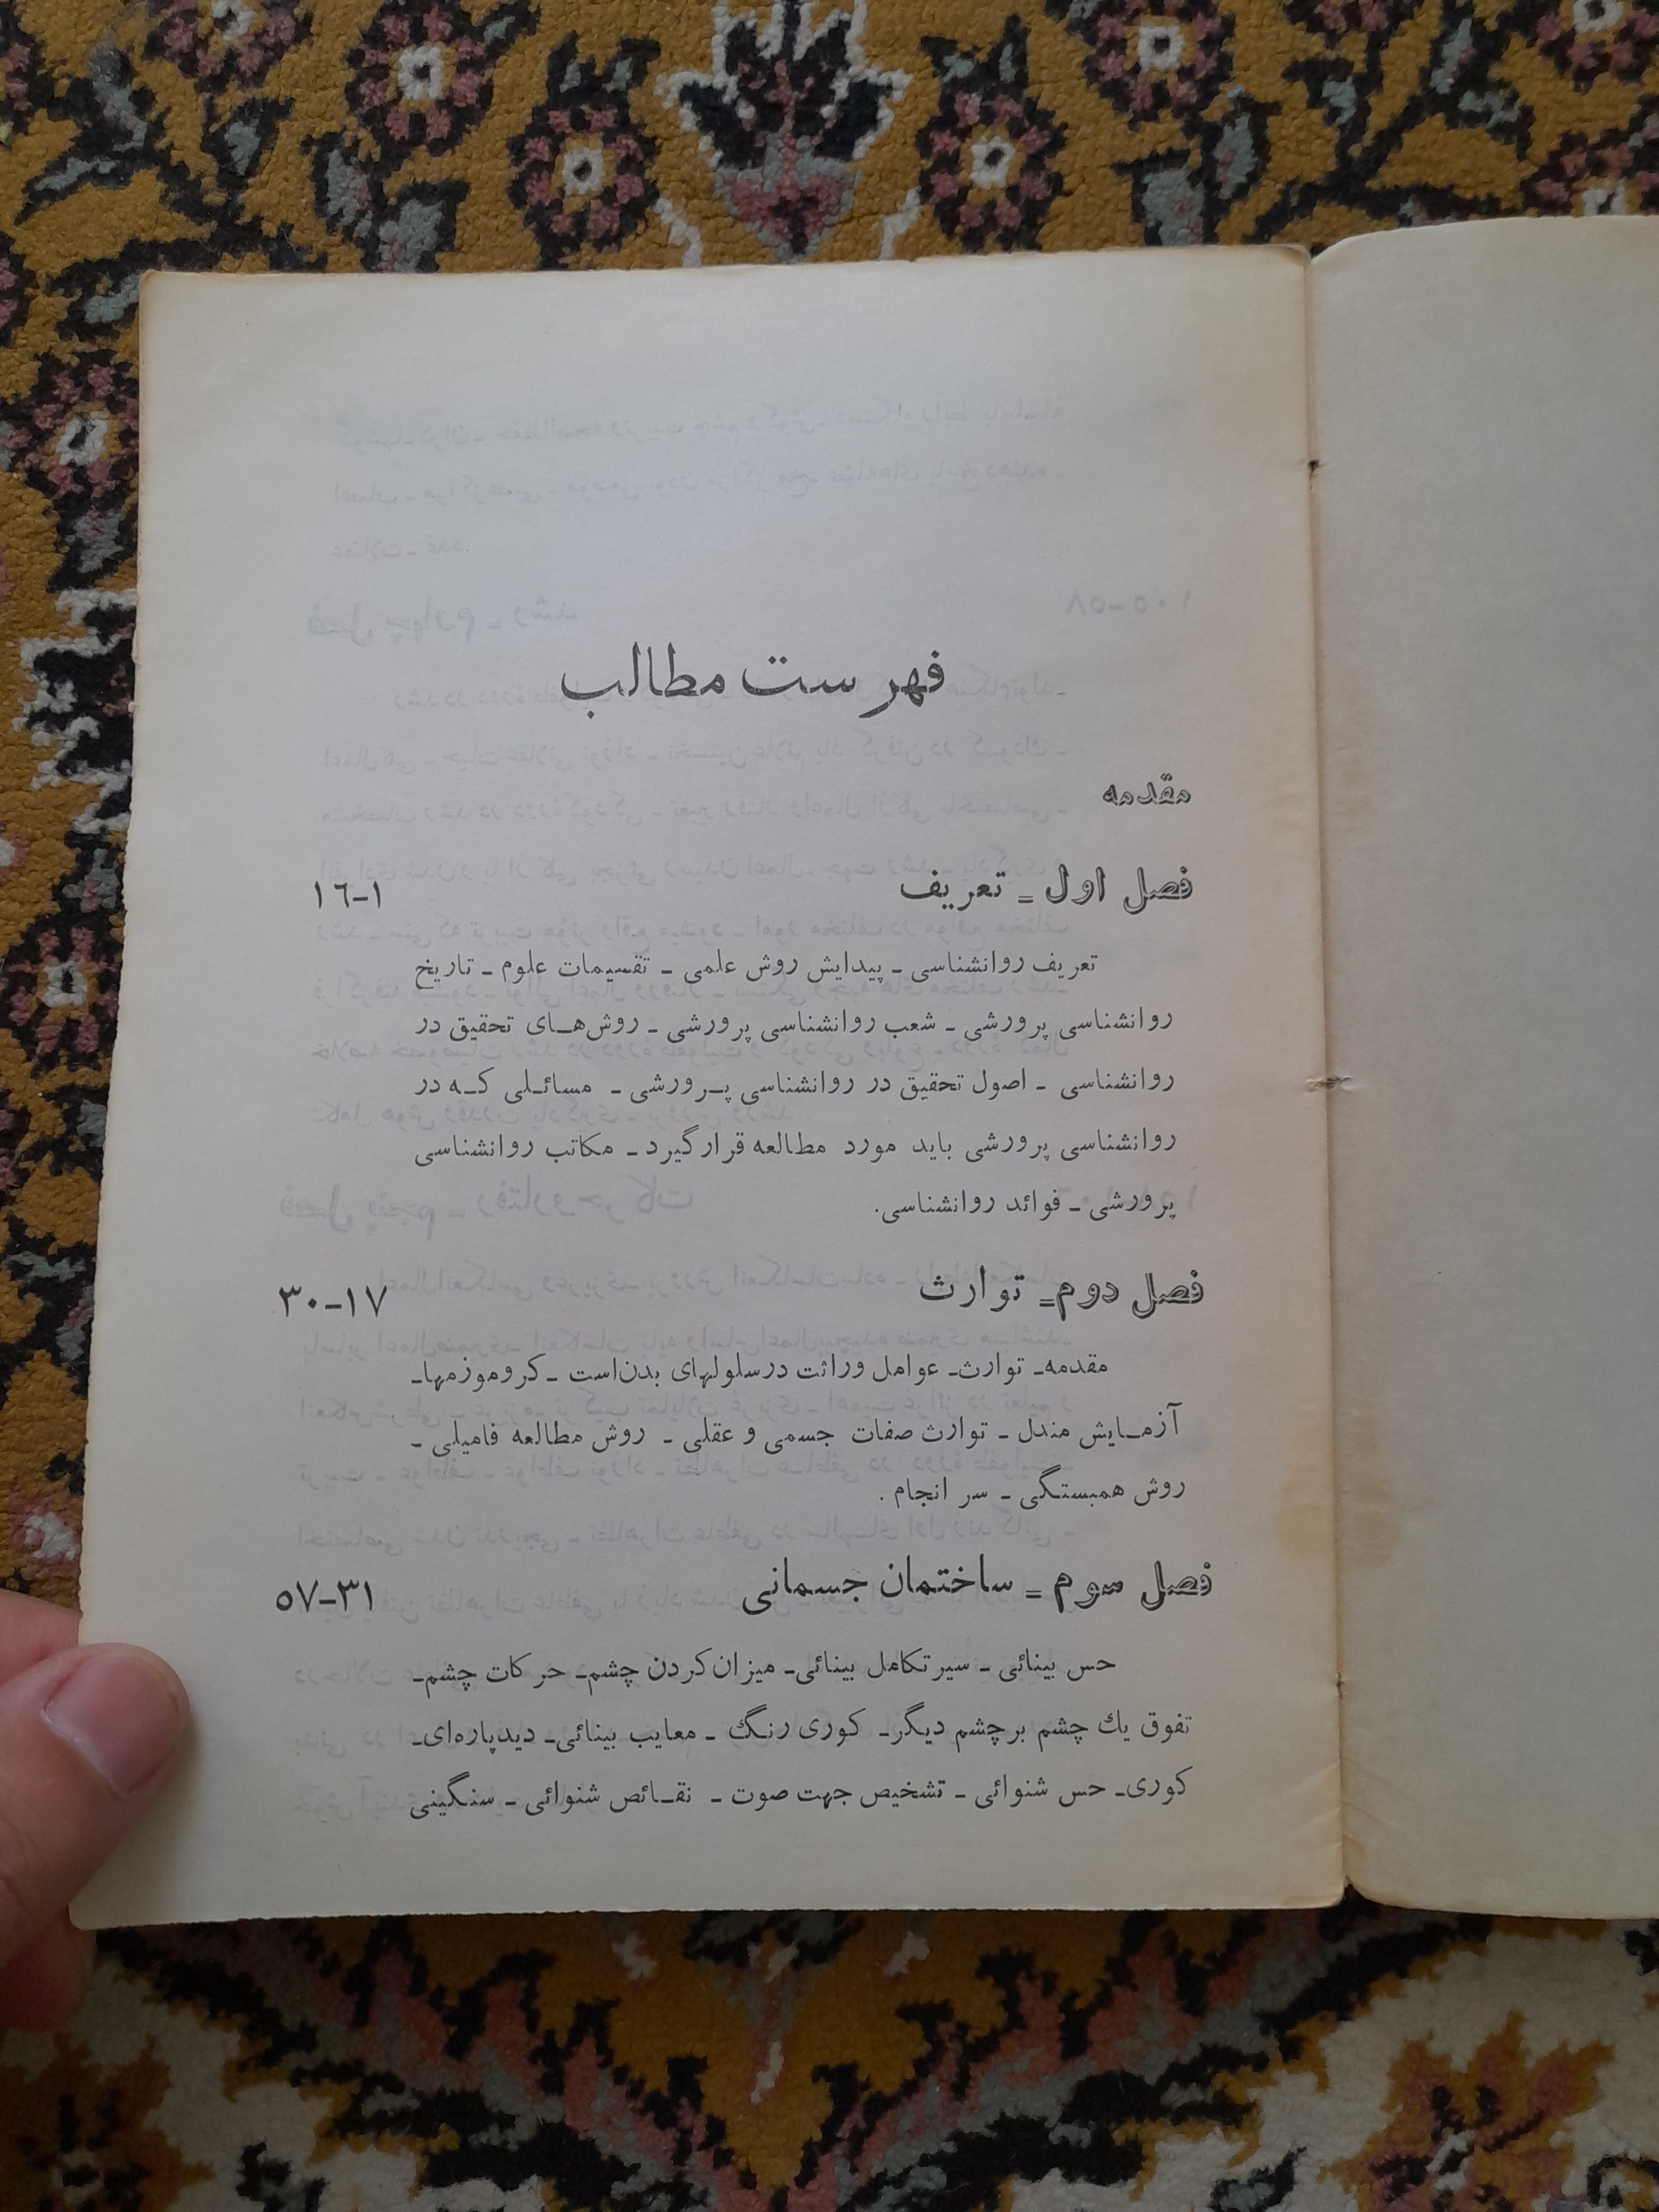 فهرست مطالب
مقدمه
فصل اول ـ تعریف ۱ـ۱٦
تعریف روانشناسی ـ پیدایش روش علمی ـ تقسیمات علوم ـ تاریخ
روانشناسی پرورشی ـ شعب روانشناسی پرورشی ـ روش‌هـای تحقیق در
روانشناسی ـ اصول تحقیق در روانشناسی پـرورشی ـ مسائـلی کـه در
روانشناسی پرورشی باید مورد مطالعه قرارگیرد ـ مکاتب روانشناسی
پرورشی ـ فوائد روانشناسی.
فصل دوم ـ توارث ۱۷ـ۳۰
مقدمه ـ توارث ـ عوامل وراثت درسلولهای بدن‌است ـ کروموزمها ـ
آزمـایش مندل ـ توارث صفات جسمی و عقلی ـ روش مطالعه فامیلی ـ
روش همبستگی ـ سر انجام .
فصل سوم ـ ساختمان جسمانی ۳۱ـ۵۷
حس بینائی ـ سیر تکامل بینائی ـ میزان‌کردن چشم ـ حرکات چشم ـ
تفوق یك چشم برچشم دیگر ـ کوری رنگ ـ معایب بینائی ـ دیدپاره‌ای ـ
کوری ـ حس شنوائی ـ تشخیص جهت صوت ـ نقـائص شنوائی ـ سنگینی